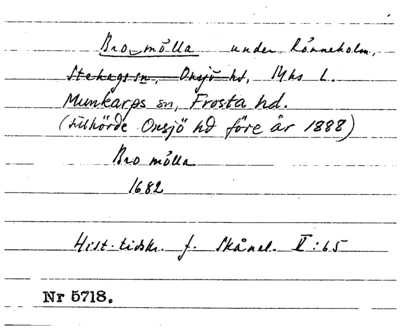 Bro-mölla under Rönneholm,
Stehags sn, Onsjö hd, Mhs L.
Munkarps sn, Frosta hd.
(tillhörde Onsjö hd före år 1888)
Bro mölla
1682
Hist. tidskr. f. Skånel. V:65
Nr 5718.